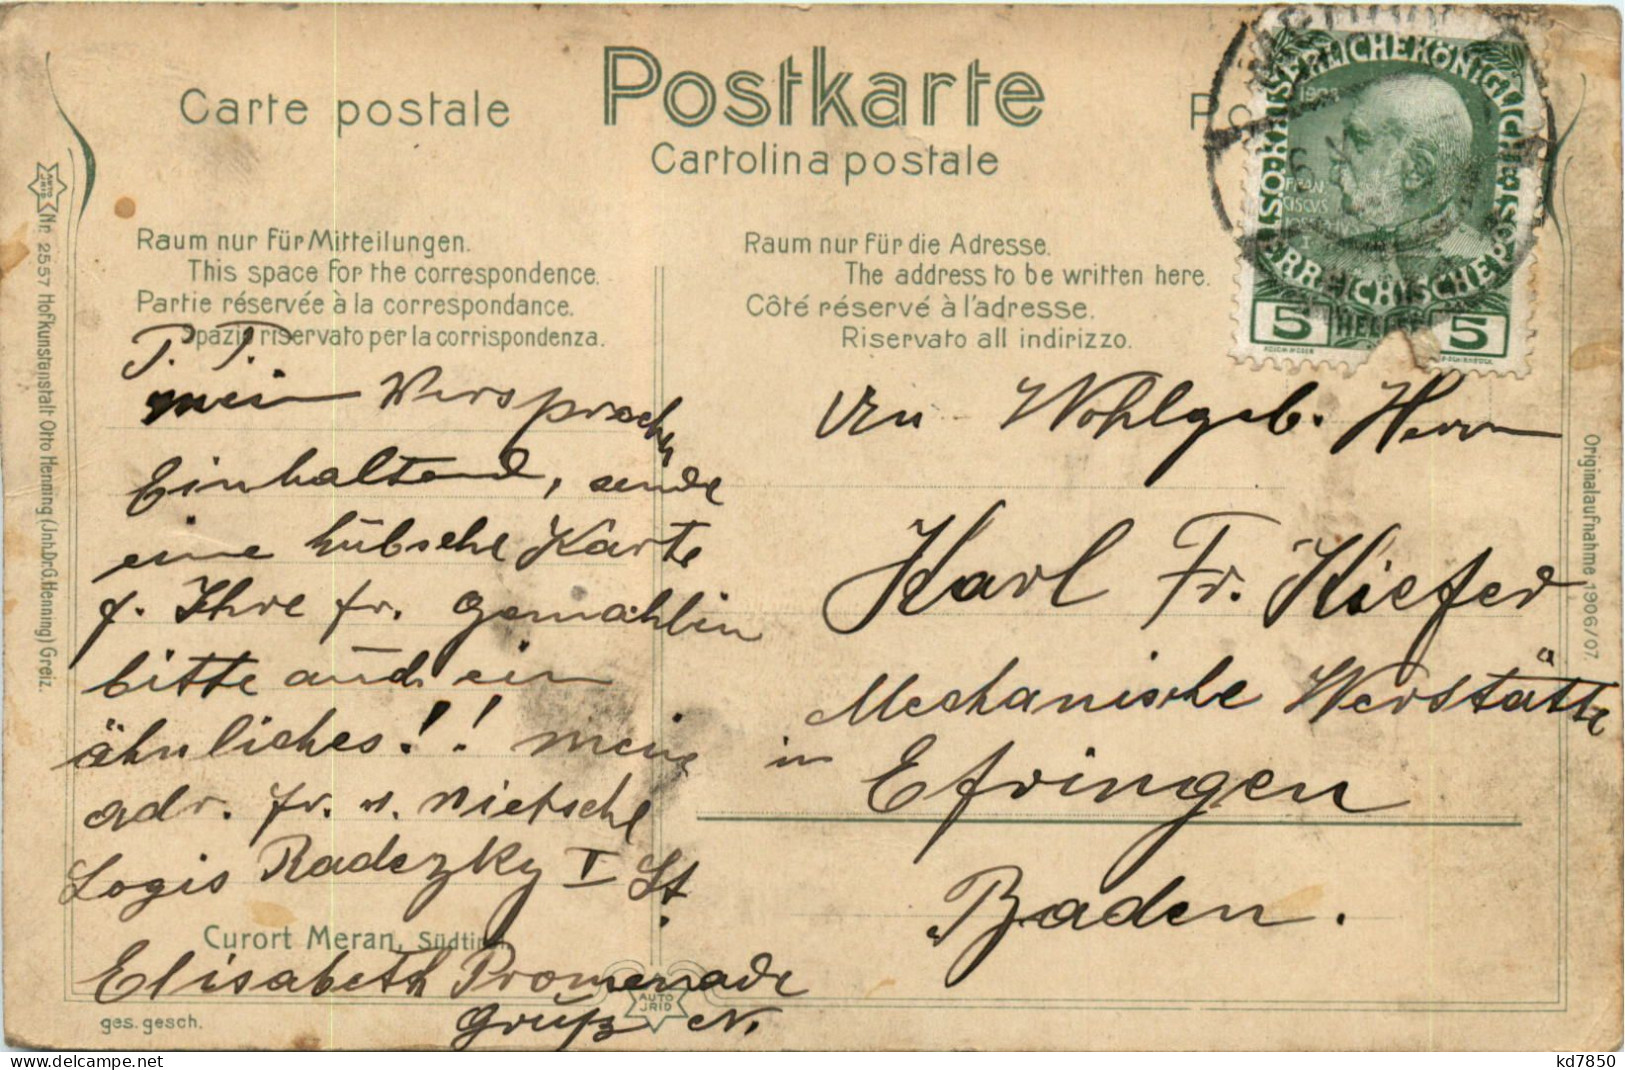 Carte postale
Postkarte
Cartolina postale
Raum nur für Mitteilungen.
This space for the correspondence.
Partie réservée à la correspondance.
Spazio riservato per la corrispondenza.
Raum nur für die Adresse.
The address to be written here.
Côté réservé à l'adresse.
Riservato all indirizzo.
KAISERLICHEKÖNIGLICHE
ÖSTERREICHISCHEPOST
1908
FRAN
CISCVS
I
5 HELLER 5
P. T.
mein Versprochen
Einhaltend, sende
eine hübsche Karte
f. Ihre fr. gemahlin
bitte auch ein
ähnliches!! meine
adr. fr. v. Nietsche
Logis Radezky I St.
Elisabeth Promenade
Gruß N.
An Wohlgeb. Herrn
Karl Fr. Kiefer
Mechanische Werstätte
in Efringen
Baden.
Curort Meran, Südtirol.
ges. gesch.
AUTO
JRID
AUTO JRID
Nr. 2557 Hofkunstanstalt Otto Henning (Jnh.Dr.G.Henning) Greiz.
Originalaufnahme 1906/07.
kd7850